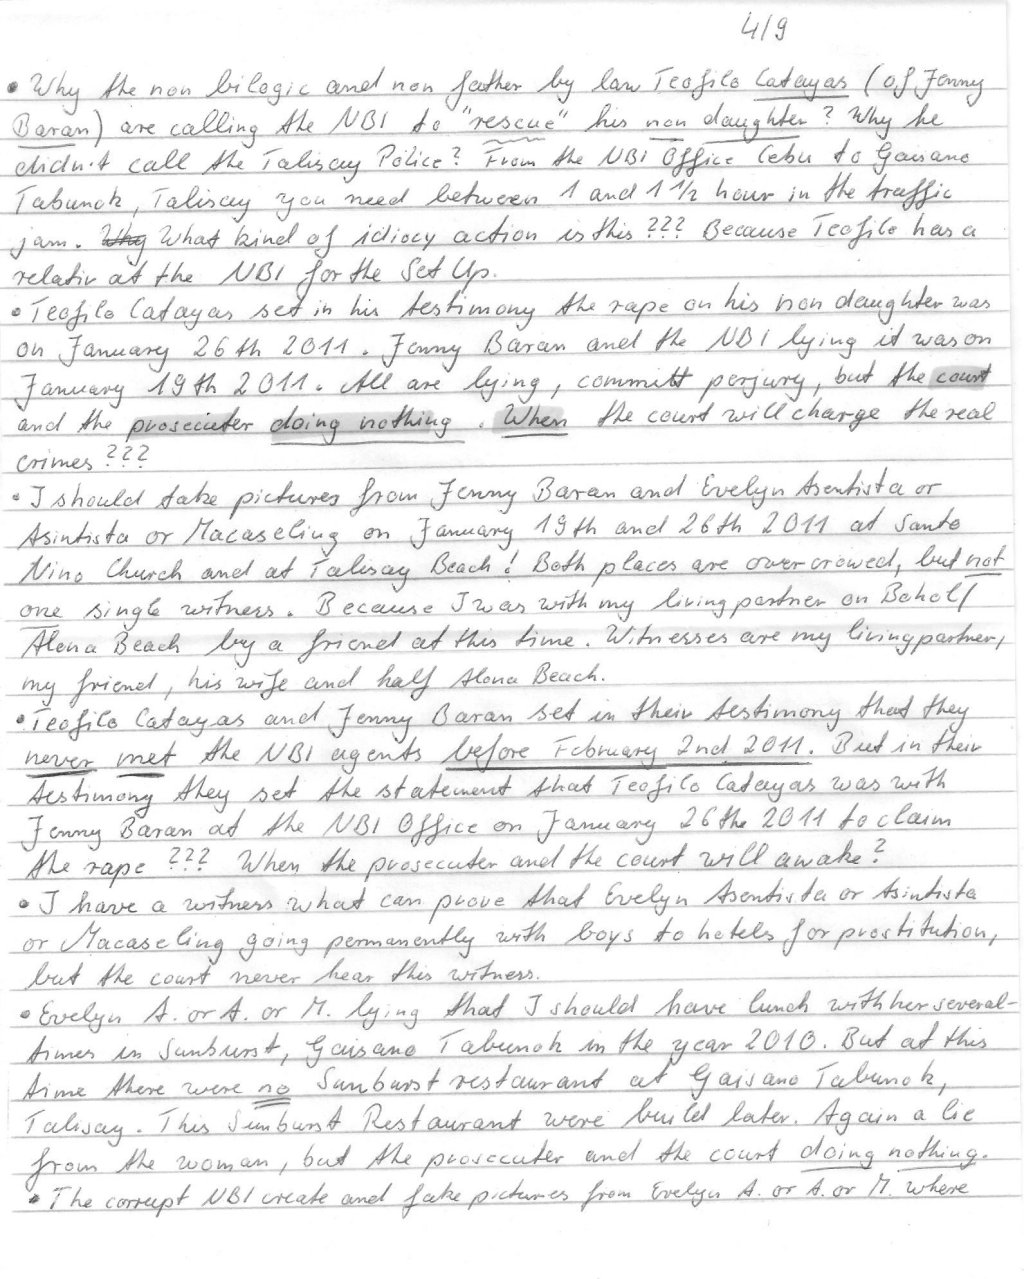 4/9
• Why the non bilogic and non father by law Teofilo Catayas (of Jenny
Baran) are calling the NBI to "rescue" his non daughter? Why he
didn't call the Talisay Police? From the NBI Office Cebu to Gaisano
Tabunok, Talisay you need between 1 and 1 1/2 hour in the traffic
jam. Why What kind of idiocy action is this ??? Because Teofilo has a
relativ at the NBI for the Set Up.
• Teofilo Catayas set in his testimony the rape on his non daughter was
on January 26th 2011. Jenny Baran and the NBI lying it was on
January 19th 2011. All are lying, committ perjury, but the court
and the prosecuter doing nothing. When the court will charge the real
crimes ???
• I should take pictures from Jenny Baran and Evelyn Asentista or
Asintista or Macaseling on January 19th and 26th 2011 at Santo
Nino Church and at Talisay Beach! Both places are over crowed, but not
one single witness. Because I was with my livingpartner on Bohol/
Alona Beach by a friend at this time. Witnesses are my livingpartner,
my friend, his wife and half Alona Beach.
• Teofilo Catayas and Jenny Baran set in their testimony that they
never met the NBI agents before February 2nd 2011. But in their
testimony they set the statement that Teofilo Catayas was with
Jenny Baran at the NBI Office on January 26the 2011 to claim
the rape ??? When the prosecuter and the court will awake?
• I have a witness what can prove that Evelyn Asentista or Asintista
or Macaseling going permanently with boys to hotels for prostitution,
but the court never hear this witness.
• Evelyn A. or A. or M. lying that I should have lunch with her several-
times in Sunburst, Gaisano Tabunok in the year 2010. But at this
time there were no Sunburst restaurant at Gaisano Tabunok,
Talisay. This Sunburst Restaurant were build later. Again a lie
from the woman, but the prosecuter and the court doing nothing.
• The corrupt NBI create and fake pictures from Evelyn A. or A. or M. where